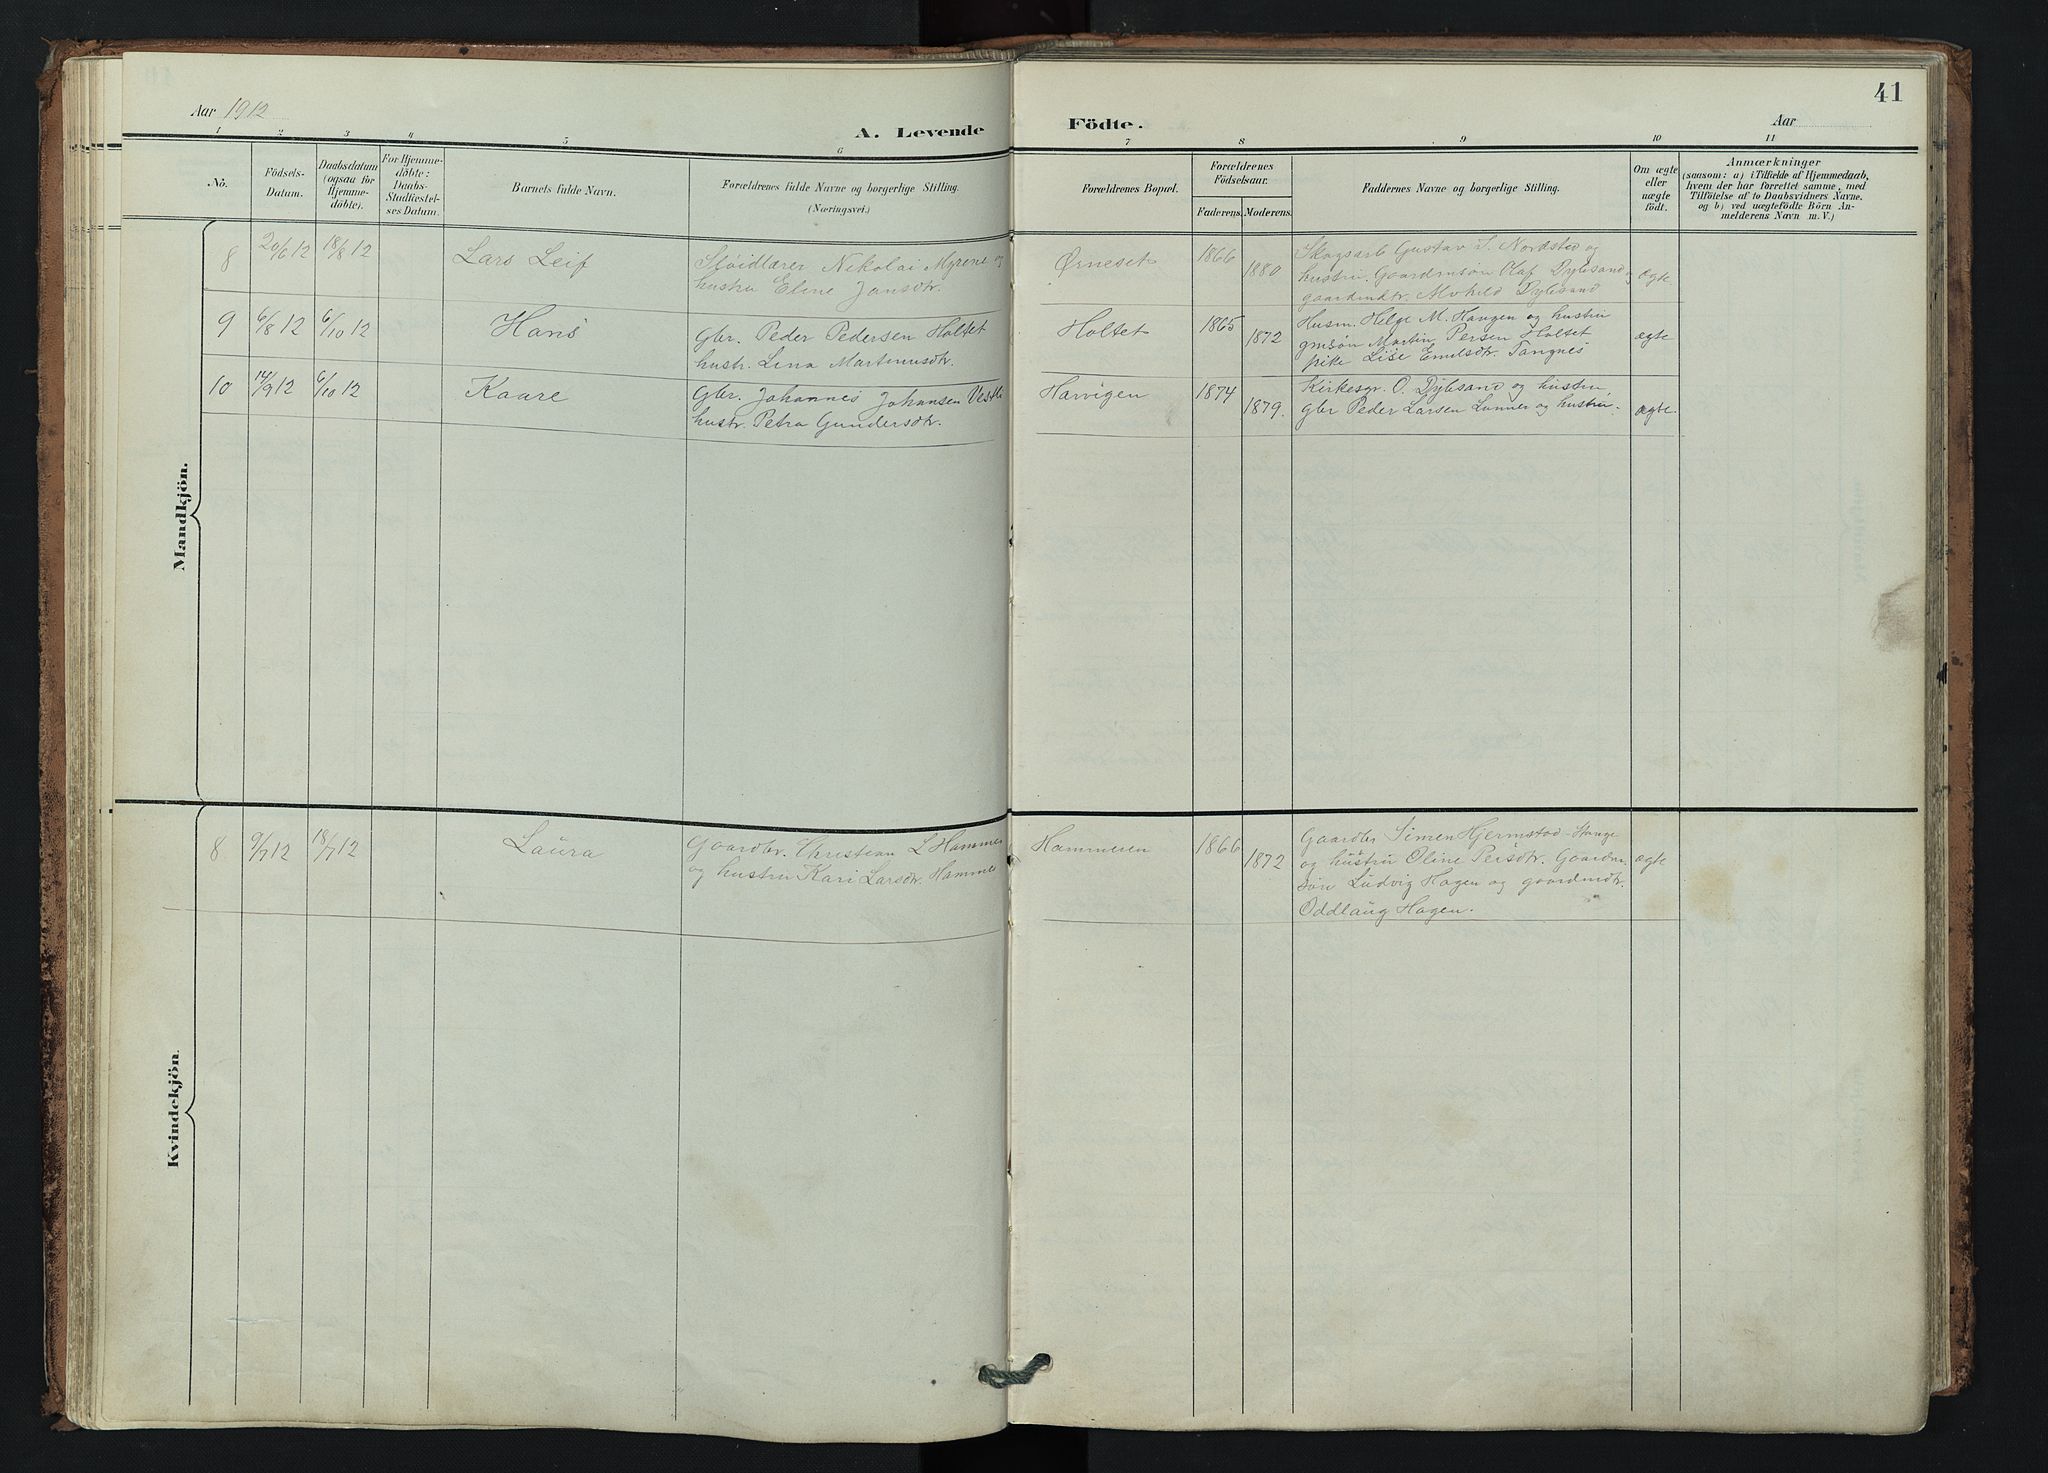 Aar 1912
A. Levende
Födte.
Aar
41
1 2 3 4 5 6 7 8 9 10 11
No.
Födsels-
Datum.
Daabsdatum
(ogsaa for
Hjemme-
döbte).
For Hjemme-
döbte:
Daabs-
Stadfæstel-
ses Datum.
Barnets fulde Navn.
Forældrenes fulde Navne og borgerlige Stilling.
(Næringsvei.)
Forældrenes Bopæl.
Forældrenes
Födselsaar.
Faderens. Moderens.
Faddernes Navne og borgerlige Stilling.
Om ægte
eller
uægte
født.
Anmærkninger
(saasom: a) i Tilfælde af Hjemmedaab,
hvem der har forrettet samme, med
Tilföielse af to Daabsvidners Navne,
og b) ved uægtefödte Börn An-
melderens Navn m. V.)
Mandkjön.
8 20/6 12 18/8 12 Lars Leif Sløidlærer Nikolai Myrene og
hustru Eline Jansdtr.
Ørneset 1866 1880 Skogsarb Gustav S. Nordsted og
hustru. Gaardmsøn Olaf Dybsand og
gaardmdtr. Alvhild Dybsand
ægte
9 6/8 12 6/10 12 Hans Gbr. Peder Pedersen Holtet
hustr. Lina Martinusdtr.
Holtet 1865 1872 Husm. Helge M. Haugen og hustru
gmsøn Martin Persen Holtet
pike Lise Emilsdtr. Tangnes
ægte
10 14/9 12 6/10 12 Kaare Gbr. Johannes Johansen Vestli
hustr. Petra Gundersdtr.
Harvigen 1874 1879. Kirkesgr. O. Dybsand og hustru
gbr Peder Larsen Lunner og hustru.
ægte.
Kvindekjön.
8 9/7 12 18/7 12 Laura Gaardbr. Christian L Hammer
og hustru Kari Larsdtr. Hammer
Hammeren 1866 1872 Gaardbr Simen Hjermstad-Stange
og hustru Oline Persdtr. Gaardm
søn Ludvig Hagen og gaardmdtr.
Oddlaug Hagen.
ægte